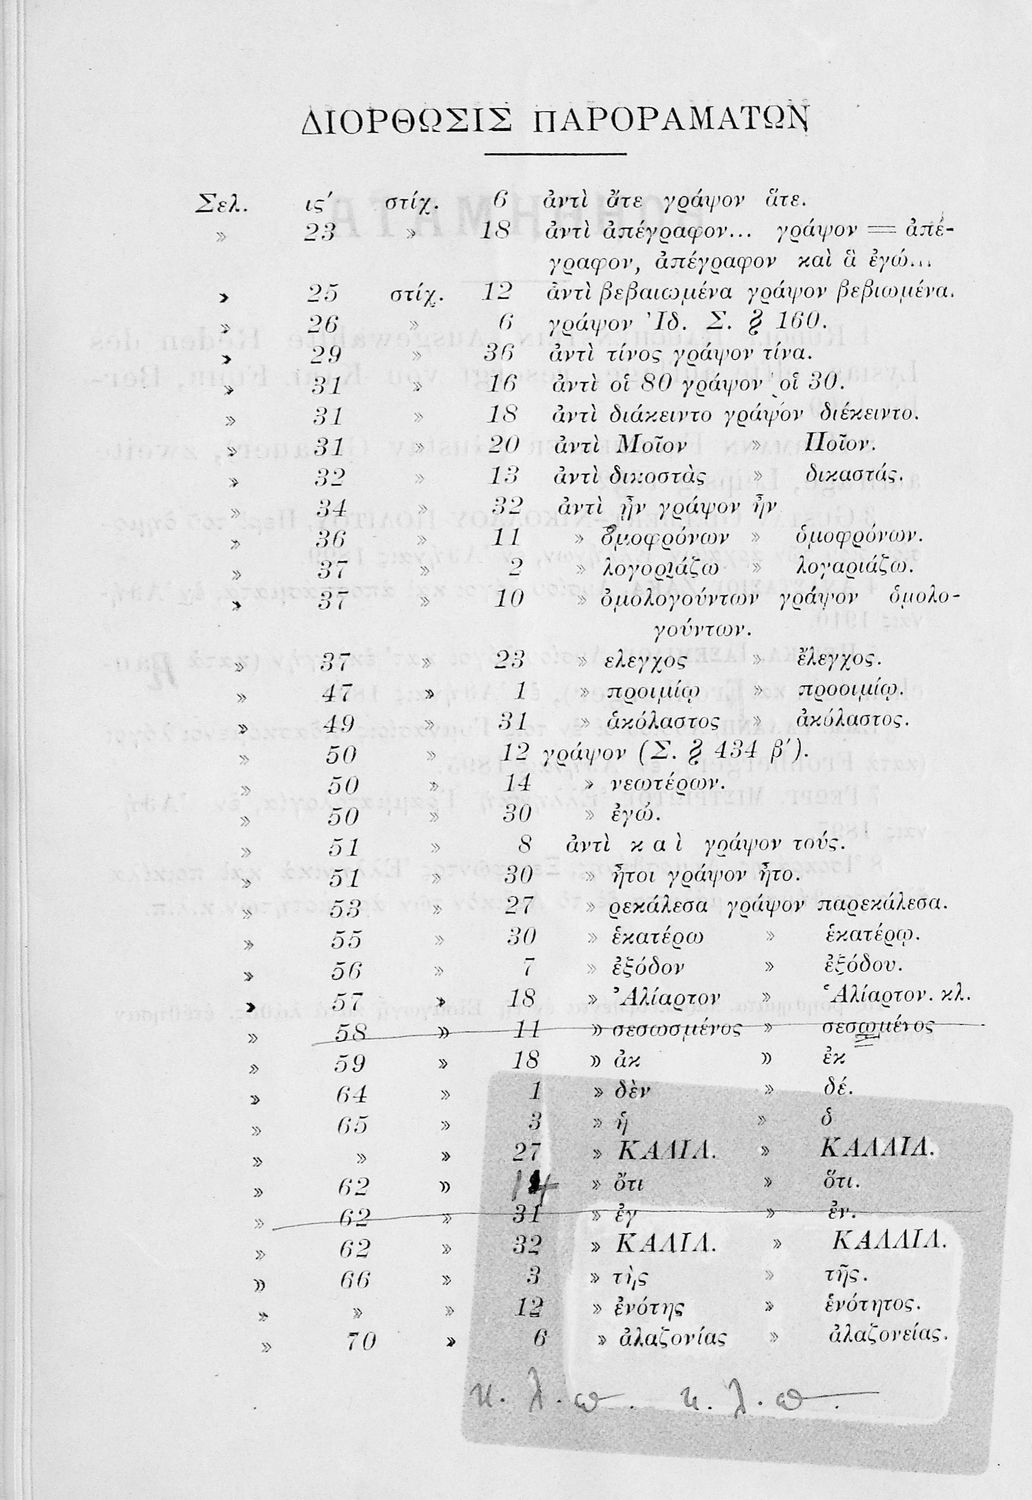 ΔΙΟΡΘΩΣΙΣ ΠΑΡΟΡΑΜΑΤΩΝ
Σελ. ις′ στίχ. 6 ἀντὶ ἄτε γράψον ἅτε.
» 23 » 18 ἀντὶ ἀπέγραφον... γράψον = ἀπέ-
γραφον, ἀπέγραφον καὶ ἃ ἐγώ...
» 25 στίχ. 12 ἀντὶ βεβαιωμένα γράψον βεβιωμένα.
» 26 » 6 γράψον Ἰδ. Σ. § 160.
» 29 » 36 ἀντὶ τίνος γράψον τίνα.
» 31 » 16 ἀντὶ οἱ 80 γράψον οἱ 30.
» 31 » 18 ἀντὶ διάκειντο γράψον διέκειντο.
» 31 » 20 ἀντὶ Μοῖον » Ποῖον.
» 32 » 13 ἀντὶ δικοστὰς » δικαστάς.
» 34 » 32 ἀντὶ ᾖν γράψον ἦν
» 36 » 11 » ὀμοφρόνων » ὁμοφρόνων.
» 37 » 2 » λογοριάζω » λογαριάζω.
» 37 » 10 » ὀμολογούντων γράψον ὁμολο-
γούντων.
» 37 » 23 » ελεγχος » ἔλεγχος.
» 47 » 1 » προιμίῳ » προοιμίῳ.
» 49 » 31 » ἁκόλαστος » ἀκόλαστος.
» 50 » 12 γράψον (Σ. § 434 β′).
» 50 » 14 » νεωτέρων.
» 50 » 30 » ἐγώ.
» 51 » 8 ἀντὶ κ α ὶ γράψον τούς.
» 51 » 30 » ἦτοι γράψον ἦτο.
» 53 » 27 » ρεκάλεσα γράψον παρεκάλεσα.
» 55 » 30 » ἑκατέρω » ἑκατέρῳ.
» 56 » 7 » ἐξόδον » ἐξόδου.
» 57 » 18 » Ἀλίαρτον » Ἁλίαρτον. κλ.
» 58 » 11 » σεσωσμένος » σεσωμένος
» 59 » 18 » ἀκ » ἐκ
» 64 » 1 » δὲν » δέ.
» 65 » 3 » ἡ » ὁ
» » » 27 » ΚΑΛΙΛ. » ΚΑΛΛΙΛ.
» 62 » 14 » ὄτι » ὅτι.
» 62 » 31 » ἐγ » ἐν.
» 62 » 32 » ΚΑΛΙΛ. » ΚΑΛΛΙΛ.
» 66 » 3 » τὴς » τῆς.
» » » 12 » ἐνότης » ἑνότητος.
» 70 » 6 » ἀλαζονίας » ἀλαζονείας.
κ. λ. π. κ. λ. π.